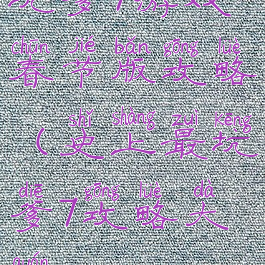 爹7游戏
chūn jié bǎn gōng lüè
春节版攻略
shǐ shàng zuì kēng
(史上最坑
diē gōng lüè dà
爹7攻略大
quán